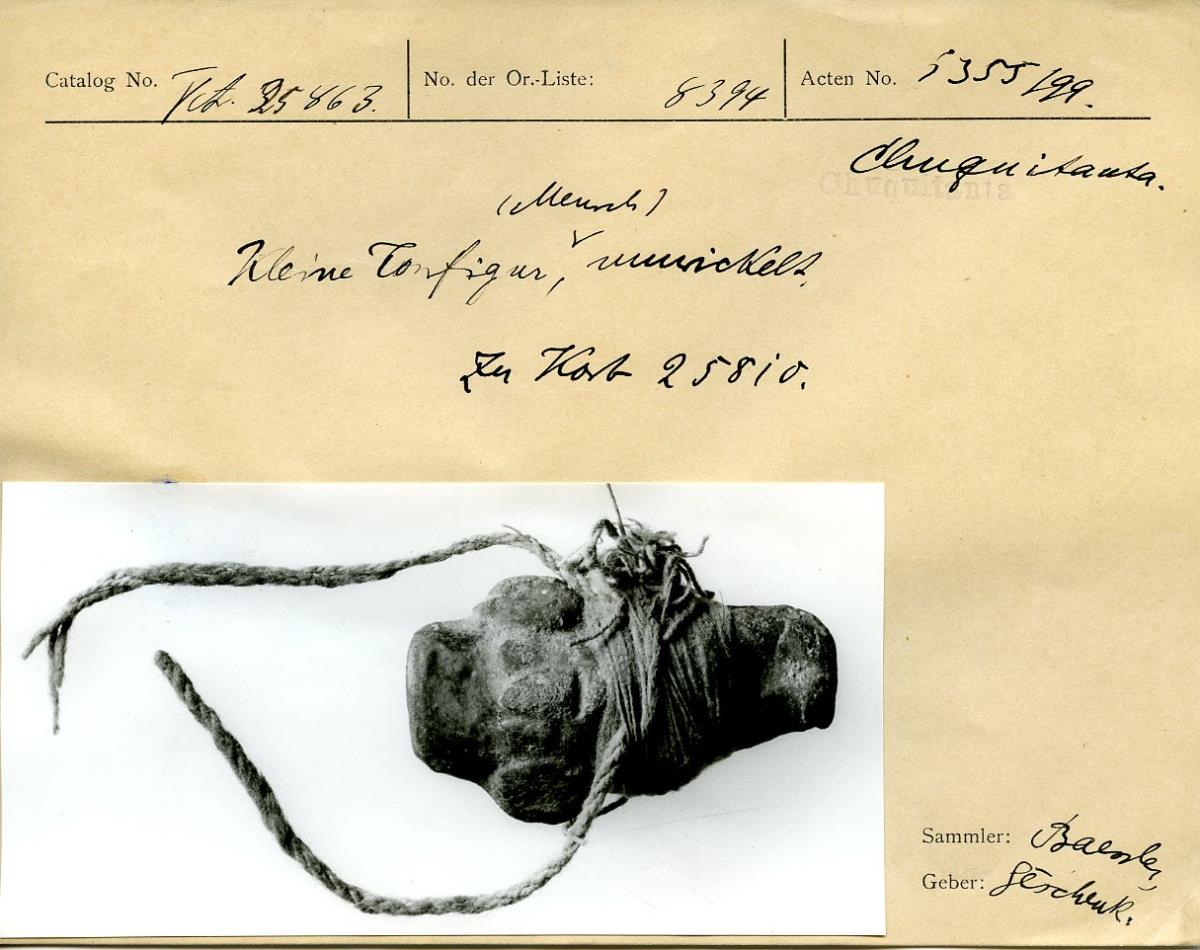 Catalog No. VA. 25863. No. der Or.-Liste: 8394 Acten No. 1355/99.
Chuquitanta.
Chuquitanta
(Mensch)
Kleine Tonfigur, umwickelt.
Zu Korb 25810.
Sammler: Baessler,
Geber: Geschenk.